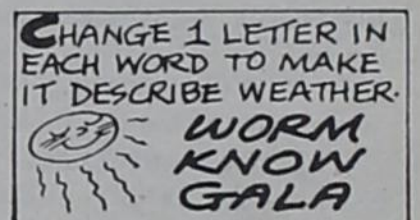 CHANGE 1 LETTER IN
EACH WORD TO MAKE
IT DESCRIBE WEATHER.
WORM
KNOW
GALA